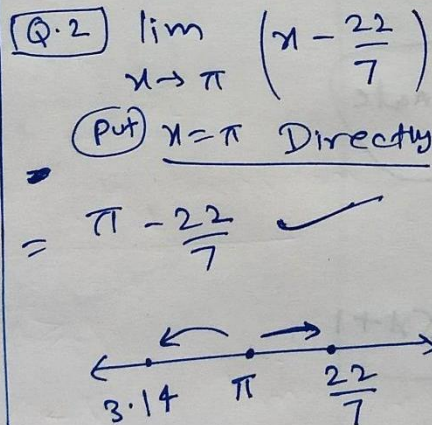 Q.2 lim (x - 22/7)
x→π
Put x=π Directly
= π - 22/7 ✓
3.14 π 22/7